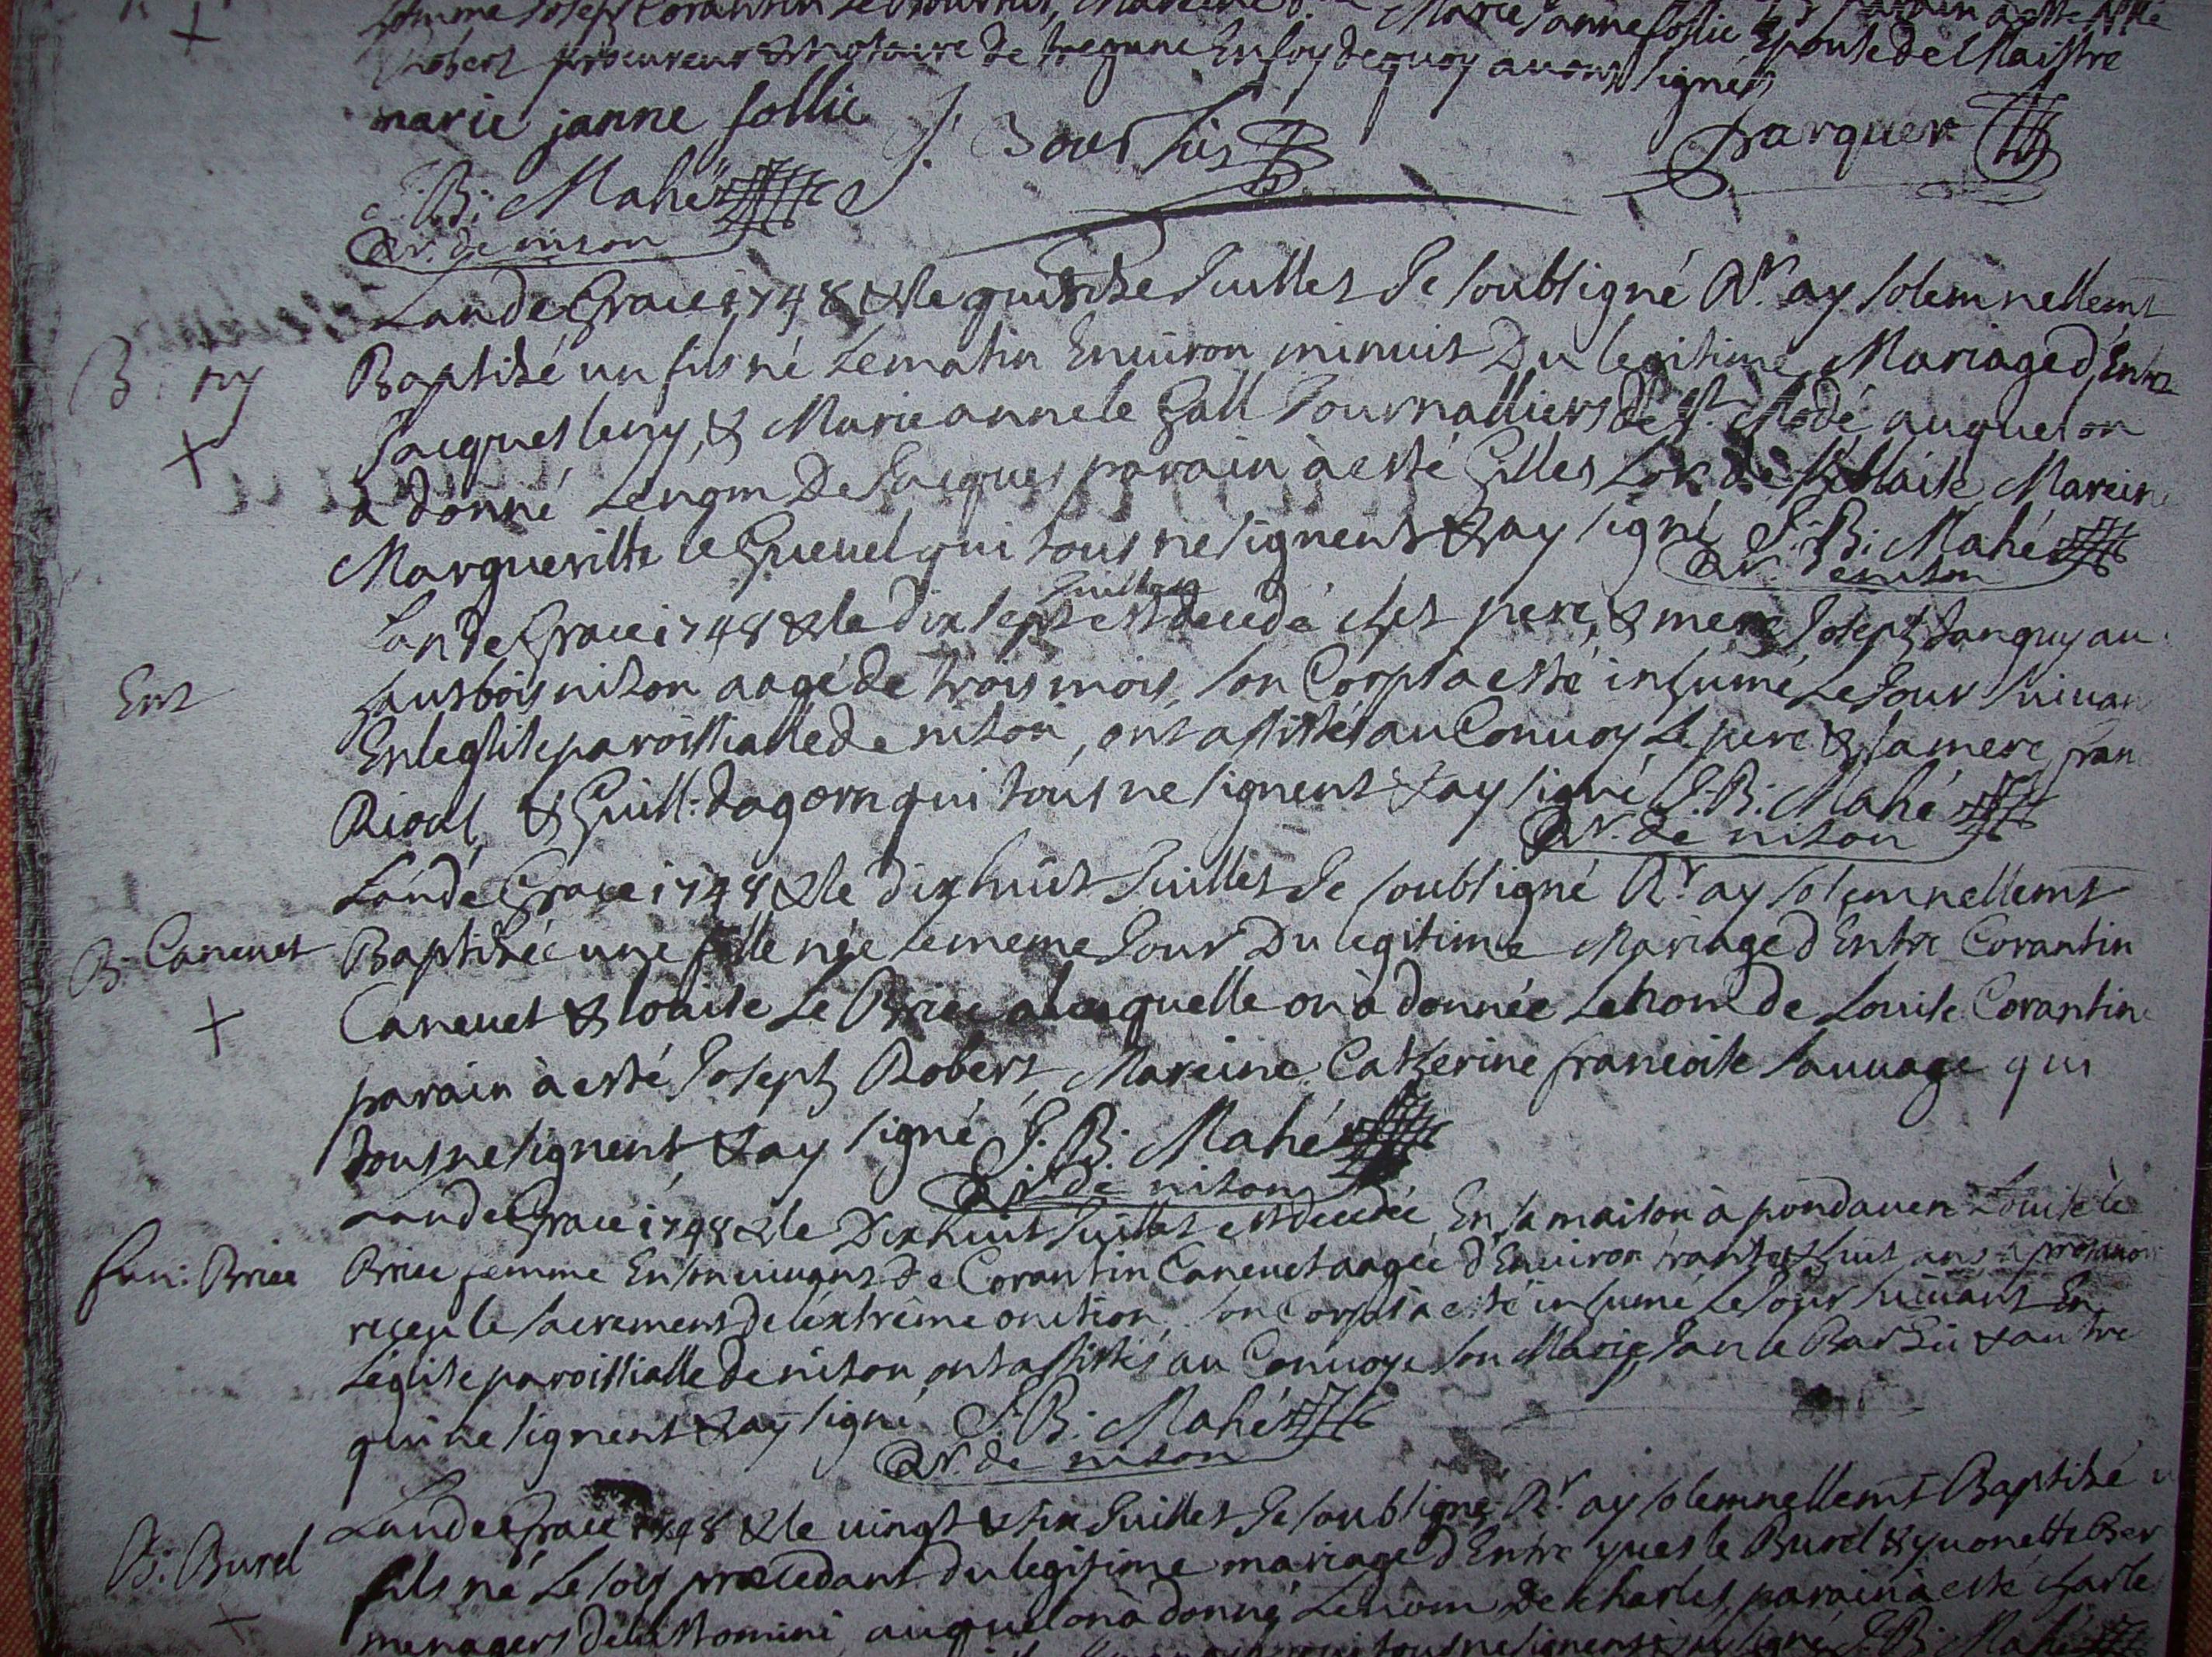 Robert procureur & notaire de tregunc En foy de quoy avons signés
marie janne sollic J. Bourhis Parquer
J: B: Mahé
Rr. de nizon
B: ny
Lan de Grace 1748 & le quinze Juillet Je soubsigné Rr. ay solemnellemt
Baptizé un fils né Le matin Environ minuit Du legitime Mariage d'Entre
Jacques le ny, & Marie anne le Gall Journalliers de St. Modé auquel on
a donné Le nom De Jacques parain à esté Gilles Mareine
Margueritte le Guevel qui tous ne signent & ay signé J: B: Mahé
Rr. de nizon
Ent
Juillet
Lan de Grace 1748 & le dix sept est decedé chés pere, & mere Joseph Tanguy au
hautbois nizon aagé de trois mois, son Corps a esté inhumé Le Jour suivant
En leglise paroissialle de nizon, ont assistés au Convoy Le pere & la mere, fran
Rioal, & Guill: dagorn qui tous ne signent & ay signé J: B: Mahé
Rr. de nizon
Lan de Grace 1748 & le dix huit Juillet Je soubsigné Rr ay solemnellemt
B: Canevet Baptizée une fille née le meme Jour Du legitime Mariage d'Entre Corantin
Canevet & louise Le Brice a laquelle on à donnée Le nom de Louise Corantine
parain à esté Joseph Robert, Mareine Catherine francoise sauvage qui
tous ne signent & ay signé J: B: Mahé
Rr. de nizon
Lan de Grace 1748 & le Dix huit Juillet est decedée En sa maison à pondaven Louise le
fun: Brice Brice femme En son vivant De Corantin Canevet aagée d'Environ trante & huit ans a pres avoir
reçeu le sacrement De lextrême onction son Corps à esté inhumé Le Jour suivant En
Léglise paroissialle de nizon, ont assistés au Convoye son Mari, Jan le Barhii & autre
qui ne signent & ay signé J: B: Mahé
Rr. de nizon
Lan de Grace 1748 & le vingt & six Juillet Je soubsigné Rr ay solemnellemt Baptizé
B: Burel fils né Le soir precedant du legitime mariage d'Entre yves le Burel & yvonette Ber
menagers De auquel on à donné Le nom De charles, parain à esté charle
J: B: Mahé